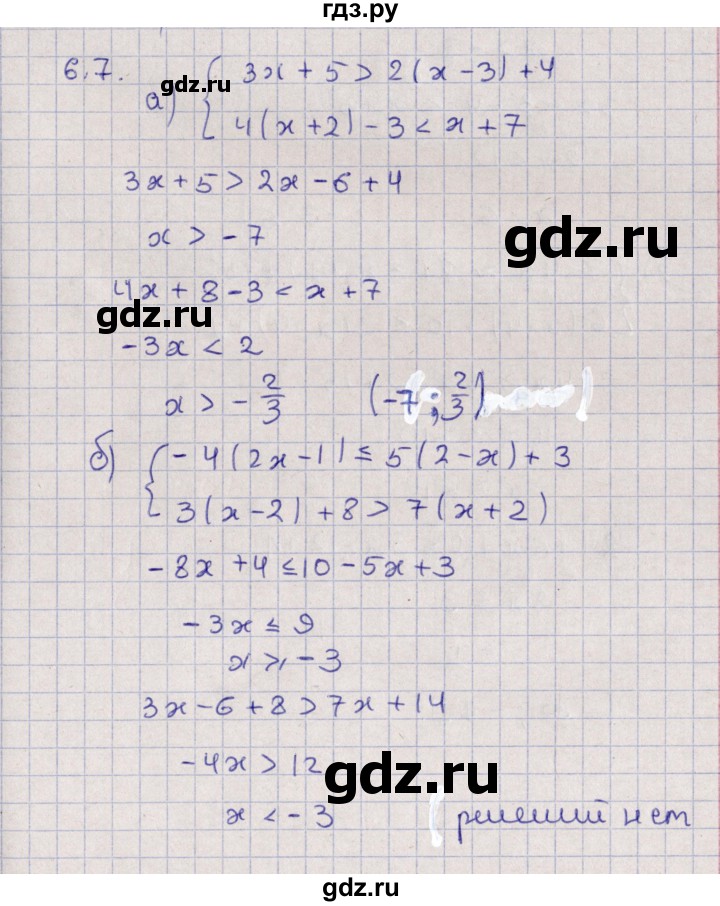 гдз.ру
6.7.
а) { 3x + 5 > 2(x - 3) + 4
4(x + 2) - 3 < x + 7
gdz.ru
3x + 5 > 2x - 6 + 4
x > - 7
gdz.ru
4x + 8 - 3 < x + 7
gdz.ru
- 3x < 2
x > - 2/3 (-7 ; 2/3)
б) { - 4(2x - 1) ≤ 5(2 - x) + 3
3(x - 2) + 8 > 7(x + 2)
- 8x + 4 ≤ 10 - 5x + 3
- 3x ≤ 9
x ≥ - 3
3x - 6 + 8 > 7x + 14
- 4x > 12
gdz.ru
x < - 3 решений нет
gdz.ru